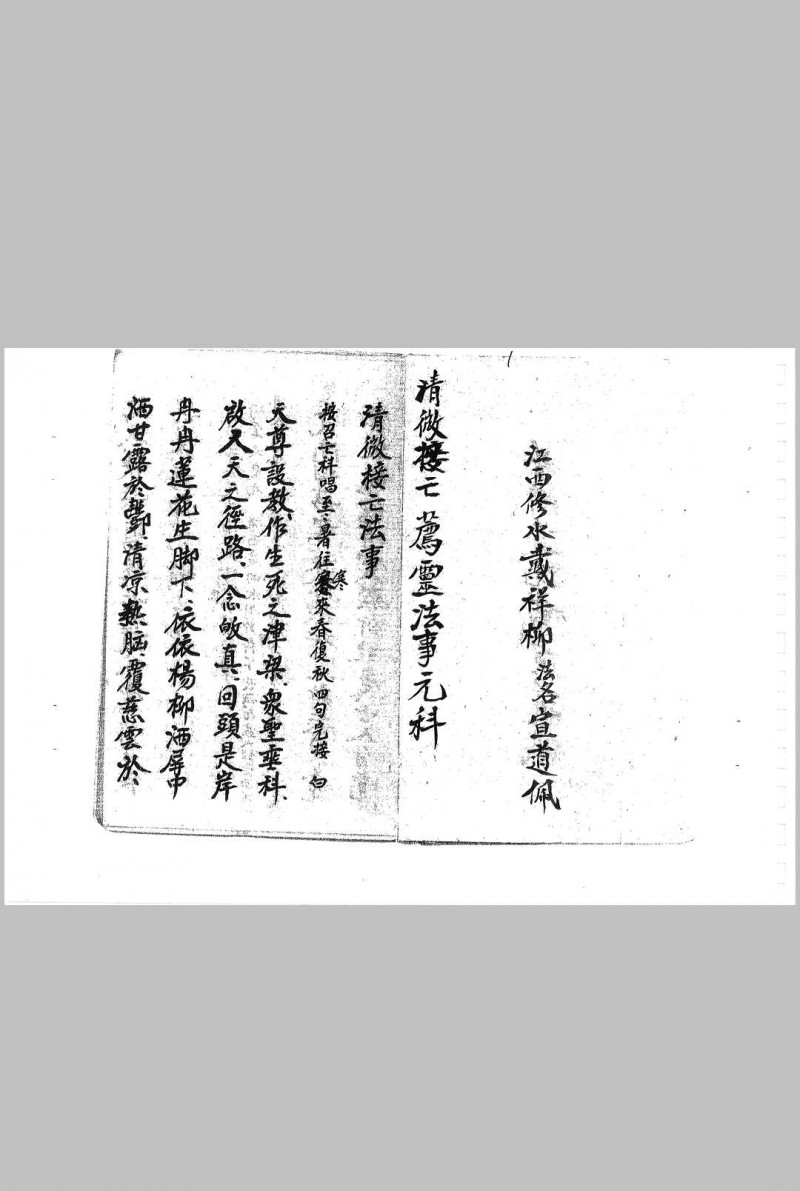 江西修水戴祥柳法名宣道佩
清微接亡薦靈法事元科
清微接亡法事
按召亡科唱至、暑往寒來春復秋四句完接 白
天尊設教、作生死之津梁、衆聖垂科、
啟人天之徑路、一念皈真、回頭是岸
冉冉蓮花生脚下、依依楊柳洒屏中
洒甘露於酆、清凉熱腦、覆慈雲於